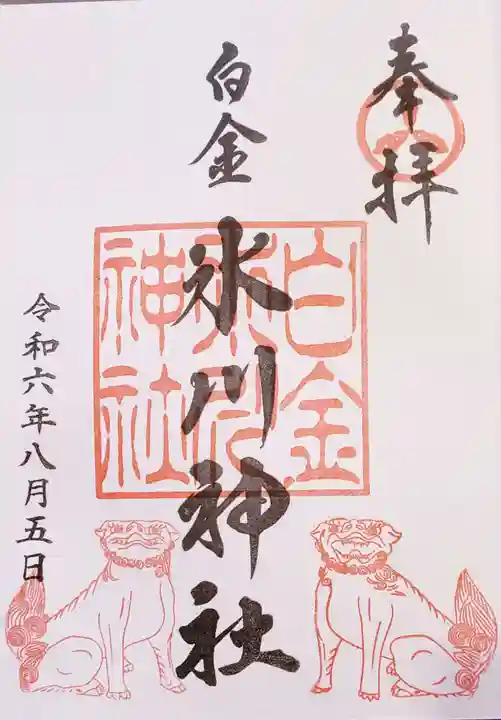 奉拝
白金
氷川神社
白金
氷川
神社
令和六年八月五日